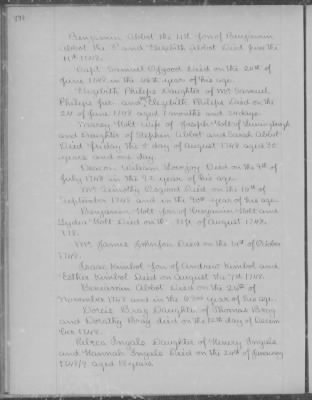 Benjamin Abbot the 4th son of Benjamin
Abbot the 3d and Elizabeth Abbot Died June the
11th 1748.
Capt. Samuel Osgood Died on the 24th of
June 1748 in the 46th year of his age.
Elizabeth Philips Daughter of Mr Samuel
Philips Jur. and Mrs Elizabeth Philips Died on the
2d of June 1748 aged 7 months and 24 days.
wife of Joseph Holt of
and Daughter of Stephen Abbot and Sarah Abbot
Died Friday the 5 day of August 1748 aged 30
years and one day.
Deacon William Lovejoy Died on the 9th of
July 1748 in the 92 year of his age.
Mr Timothy Osgood Died on the 16th of
September 1748 and in the 90th year of his age.
Benjamin Holt son of Benjamin Holt and
Lydia Holt Died on the 31st of August 1748.
Mr James Johnson Died on the 14th of October
1748.
Isaac Kimbol son of Andrew Kimbol and
Esther Kimbol Died on August the 7th 1748.
Benjamin Abbot Died on the 24th of
November 1748 and in the 63rd year of his age.
Dorcis Bray Daughter of Thomas Bray
and Dorothy Bray died on the 12th day of Decem
ber 1748.
Rebeca Ingals Daughter of Henery Ingals
and Hannah Ingals Died on the 24th of January
1748/9 aged 18 years.